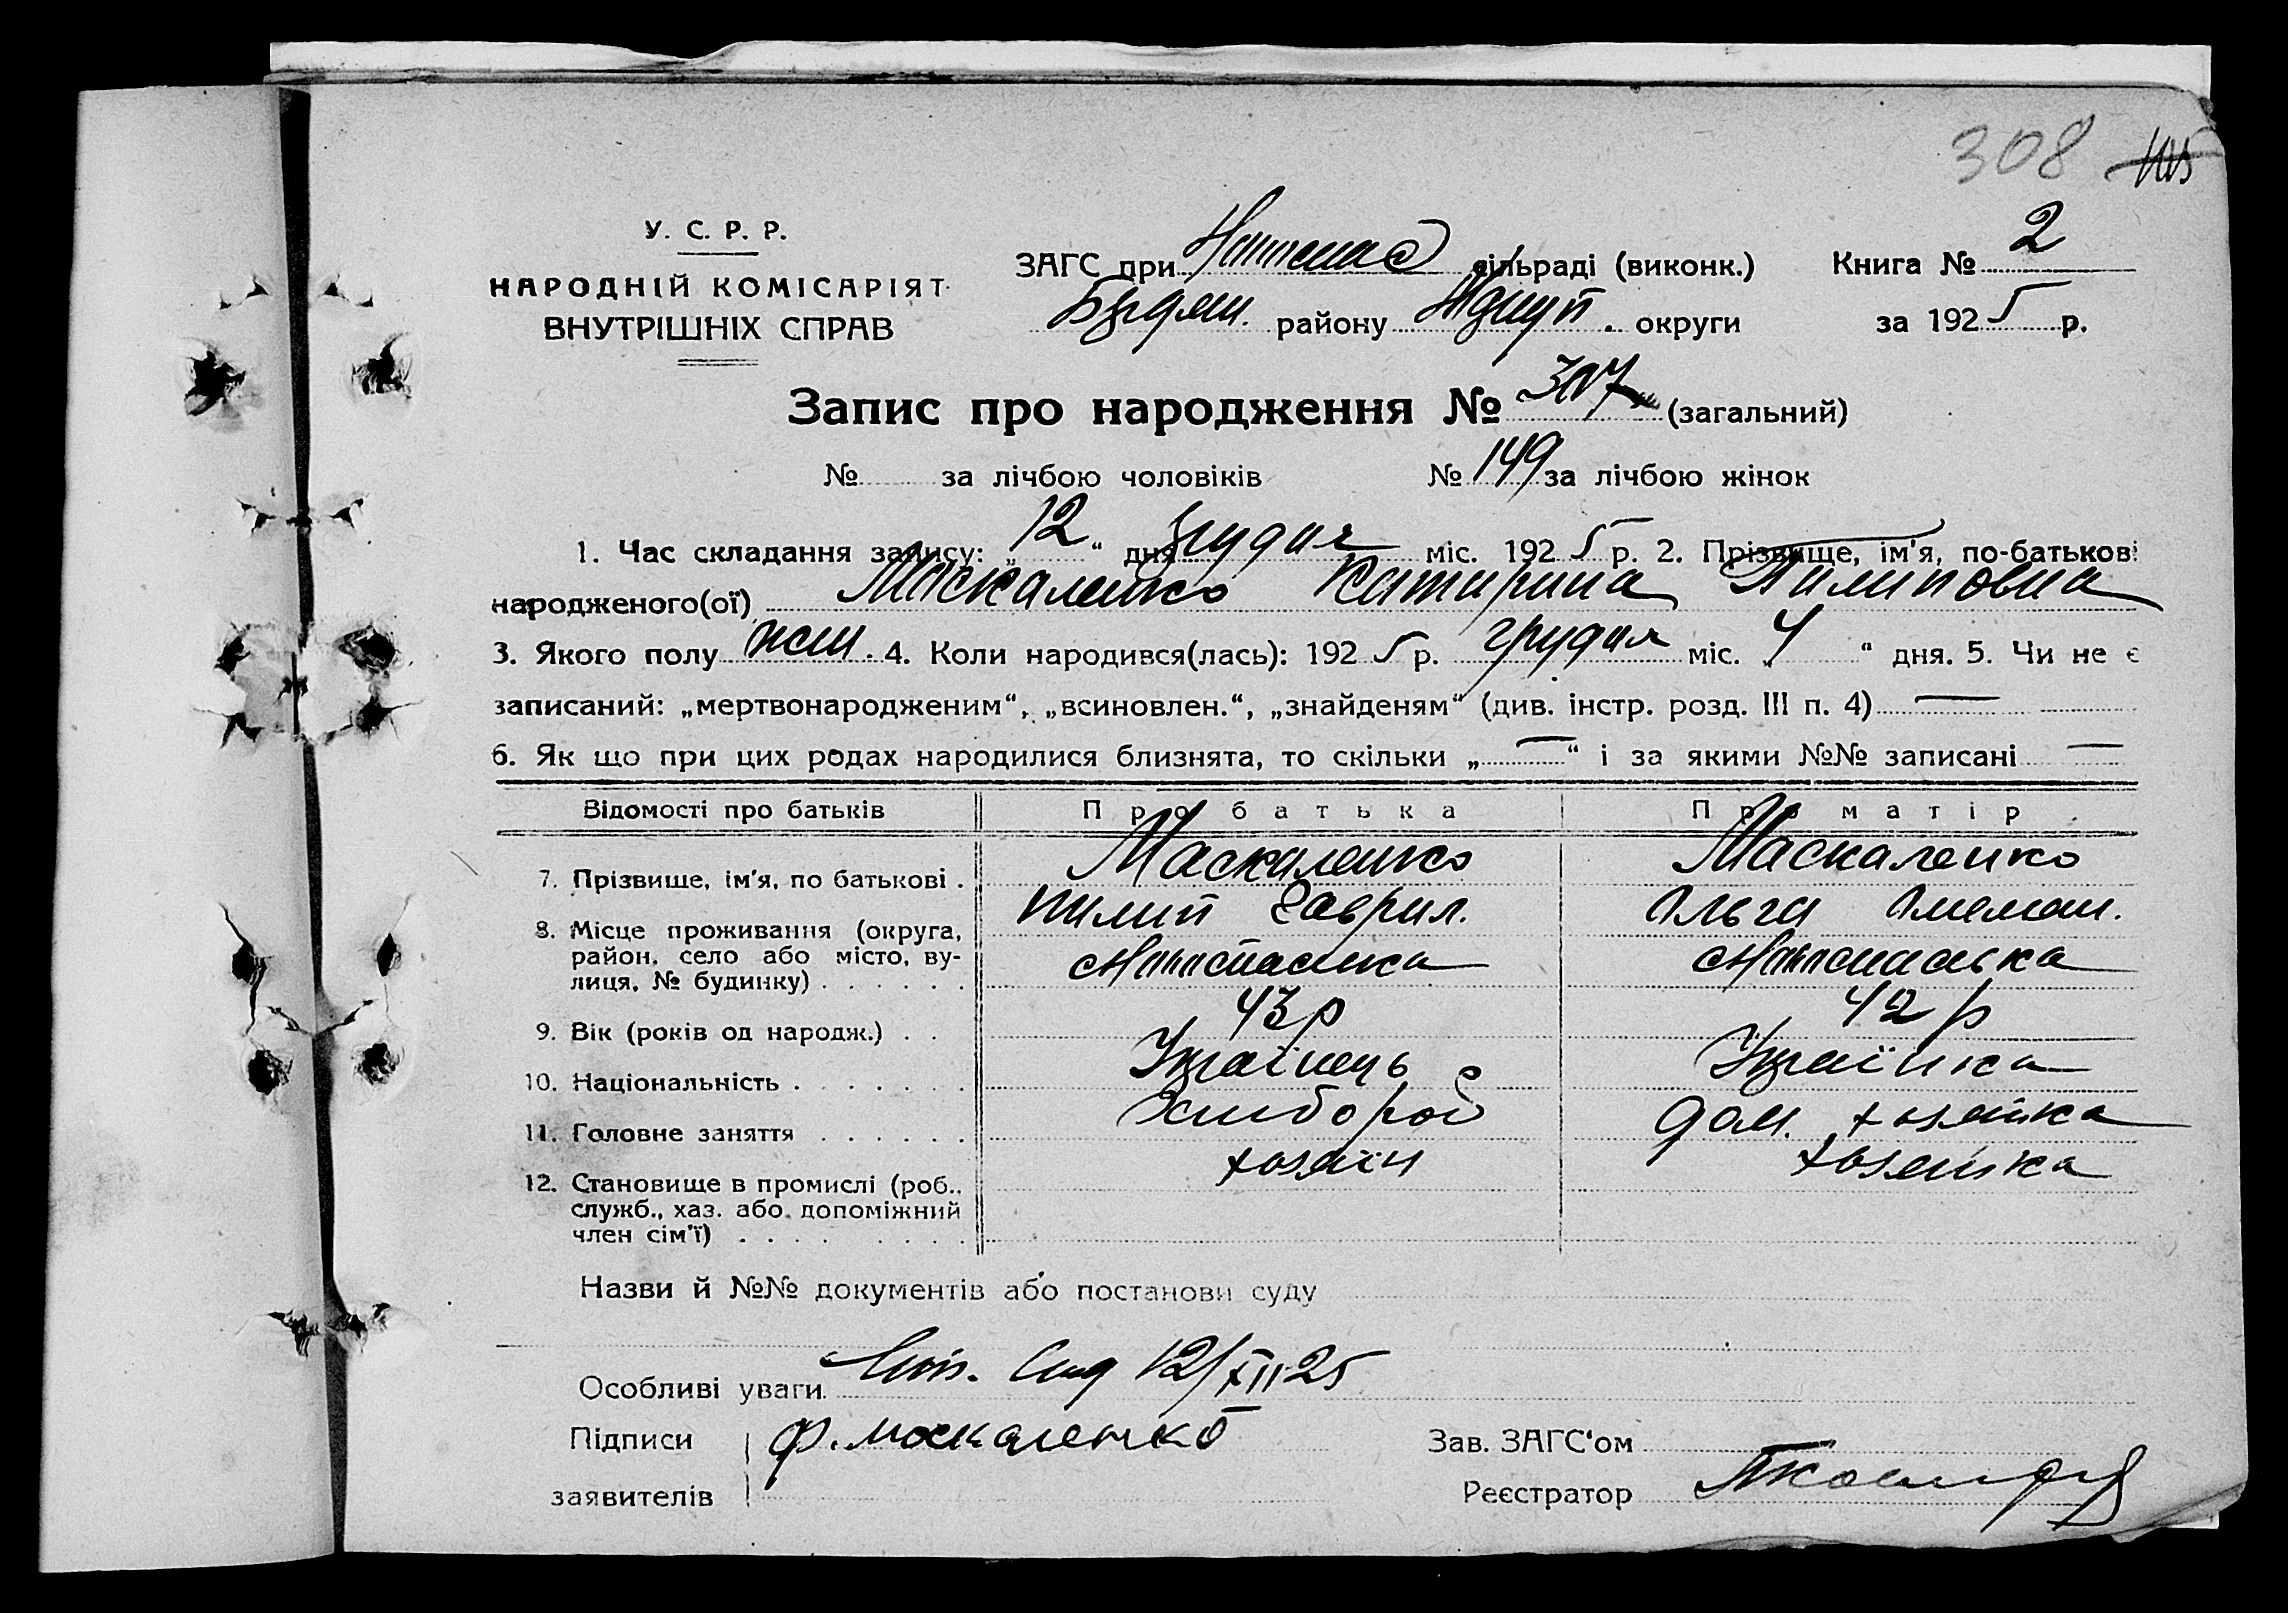 308 105
У. С. Р. Р.
НАРОДНІЙ КОМІСАРІЯТ
ВНУТРІШНІХ СПРАВ
ЗАГС при сільраді (виконк.) Книга № 2
району округи за 1925 р.
Запис про народження № 307 (загальний)
№ за лічбою чоловіків № 149 за лічбою жінок
1. Час складання запису: „12“ дня грудня міс. 1925 р. 2. Прізвище, ім'я, по-батькові
народженого(ої) Маскаленко Катирина Пилиповна
3. Якого полу жін. 4. Коли народився(лась): 1925 р. грудня міс. „4“ дня. 5. Чи не є
записаний: „мертвонародженим“, „всиновлен.“, „знайденям“ (див. інстр. розд. III п. 4) —
6. Як що при цих родах народилися близнята, то скільки „—“ і за якими №№ записані —
Відомості про батьків Про батька Про матір
7. Прізвище, ім'я, по батькові . Маскаленко Маскаленко
Пилип Гаврил. Ольга
8. Місце проживання (округа, район, село або місто, вулиця, № будинку) . . . . . .
9. Вік (років од народж.) . . 43 р 42 р
10. Національність . . . . . . . Українець Українка
11. Головне заняття . . . . . . Хлибороб дом. хозяйка
12. Становище в промислі (роб., служб., хаз. або допоміжний член сім'ї) . . . . . . . . хозяїн хозяйка
Назви й №№ документів або постанови суду
Особливі уваги 12/XII 25
Підписи заявителів Ф. москаленко
Зав. ЗАГС'ом
Реєстратор